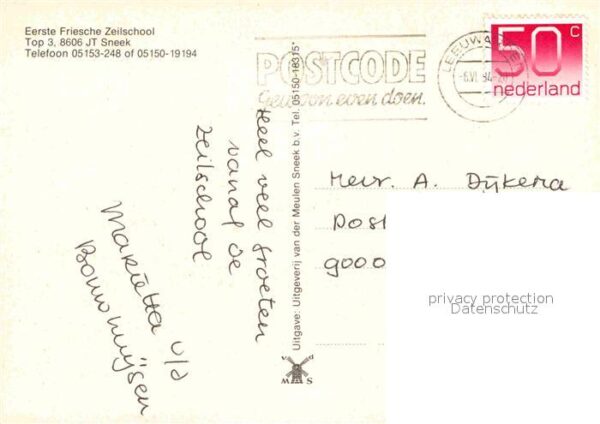 Eerste Friesche Zeilschool
Top 3, 8606 JT Sneek
Telefoon 05153-248 of 05150-19194
POSTCODE
Gewoon even doen.
LEEUWA
-6.VI.
50 c
nederland
Heel veel groeten
vanaf de
Zeilschool
Mariëtta v/d
Uitgave: Uitgeverij van der Meulen Sneek b.v. Tel. 05150-18315*
v d
M S
Mevr. A. Dijkema
Post
9000
privacy protection
Datenschutz